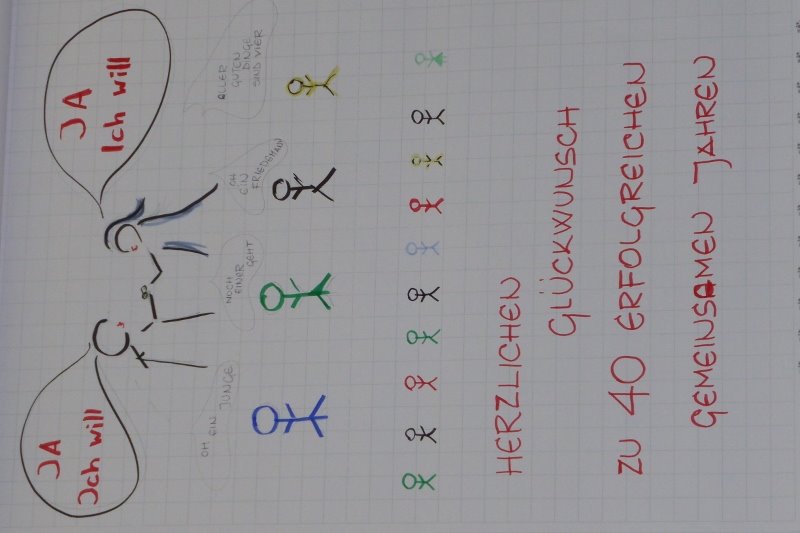 JA
Jch will
JA
Ich will
OH EIN JUNGE
NOCH
EINER
GEHT
OH
EIN
FRIEDEMANN
ALLER
GUTEN
DINGE
SIND VIER
HERZLICHEN
GLÜCKWUNSCH
ZU 40 ERFOLGREICHEN
GEMEINSAMEN JAHREN